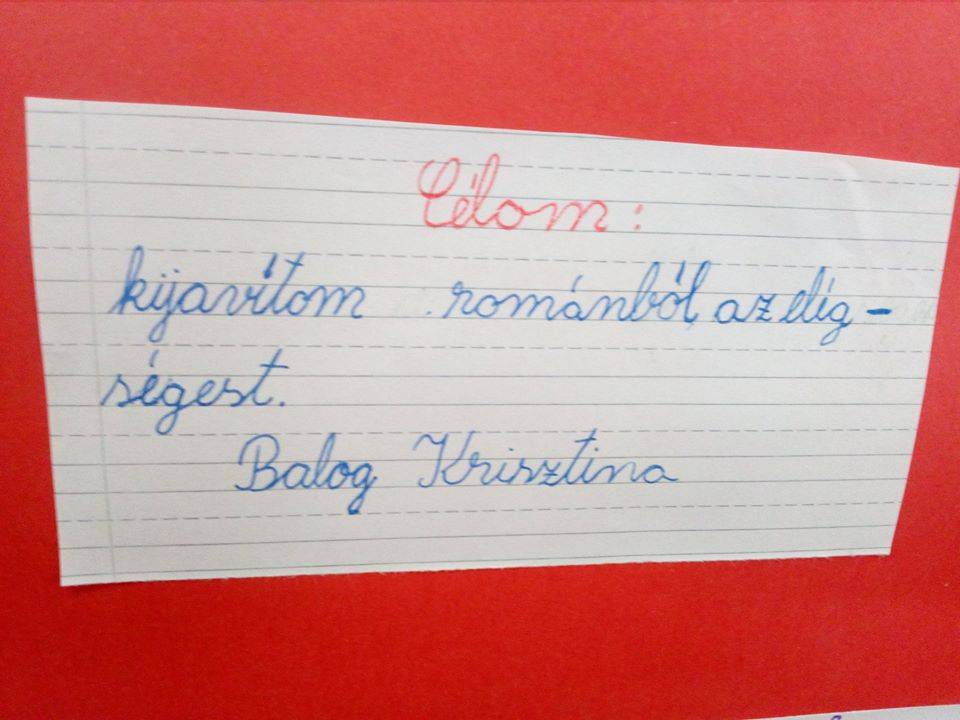 Célom:
kijavítom románból az elég-
ségest.
Balog Krisztina